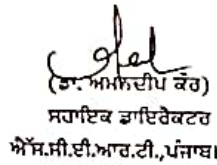 (ਡਾ. ਅਮਨਦੀਪ ਕੌਰ)
ਸਹਾਇਕ ਡਾਇਰੈਕਟਰ
ਐੱਸ.ਸੀ.ਈ.ਆਰ.ਟੀ.,ਪੰਜਾਬ।